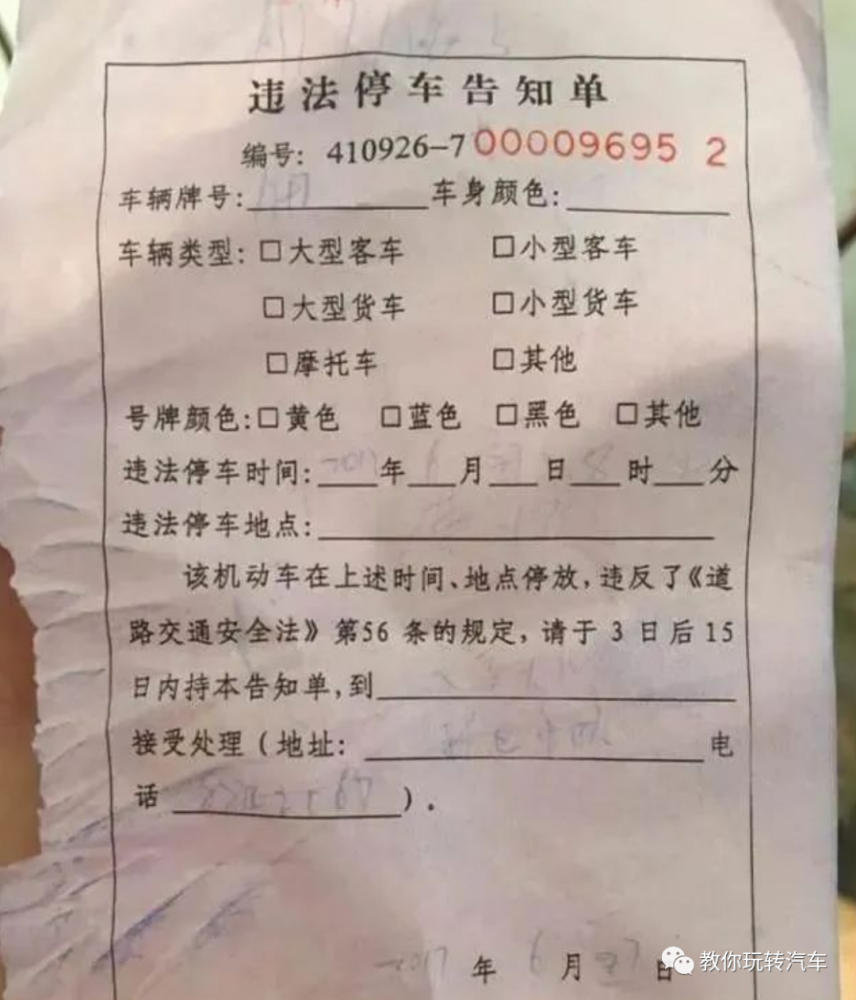 违法停车告知单
编号：410926-7 00009695 2
车辆牌号：车身颜色：
车辆类型：□大型客车 □小型客车
□大型货车 □小型货车
□摩托车 □其他
号牌颜色：□黄色 □蓝色 □黑色 □其他
违法停车时间：2017年6月日8时分
违法停车地点：
该机动车在上述时间、地点停放，违反了《道
路交通安全法》第56条的规定，请于3日后15
日内持本告知单，到
接受处理（地址：电
话）．
2017年6月27日
教你玩转汽车